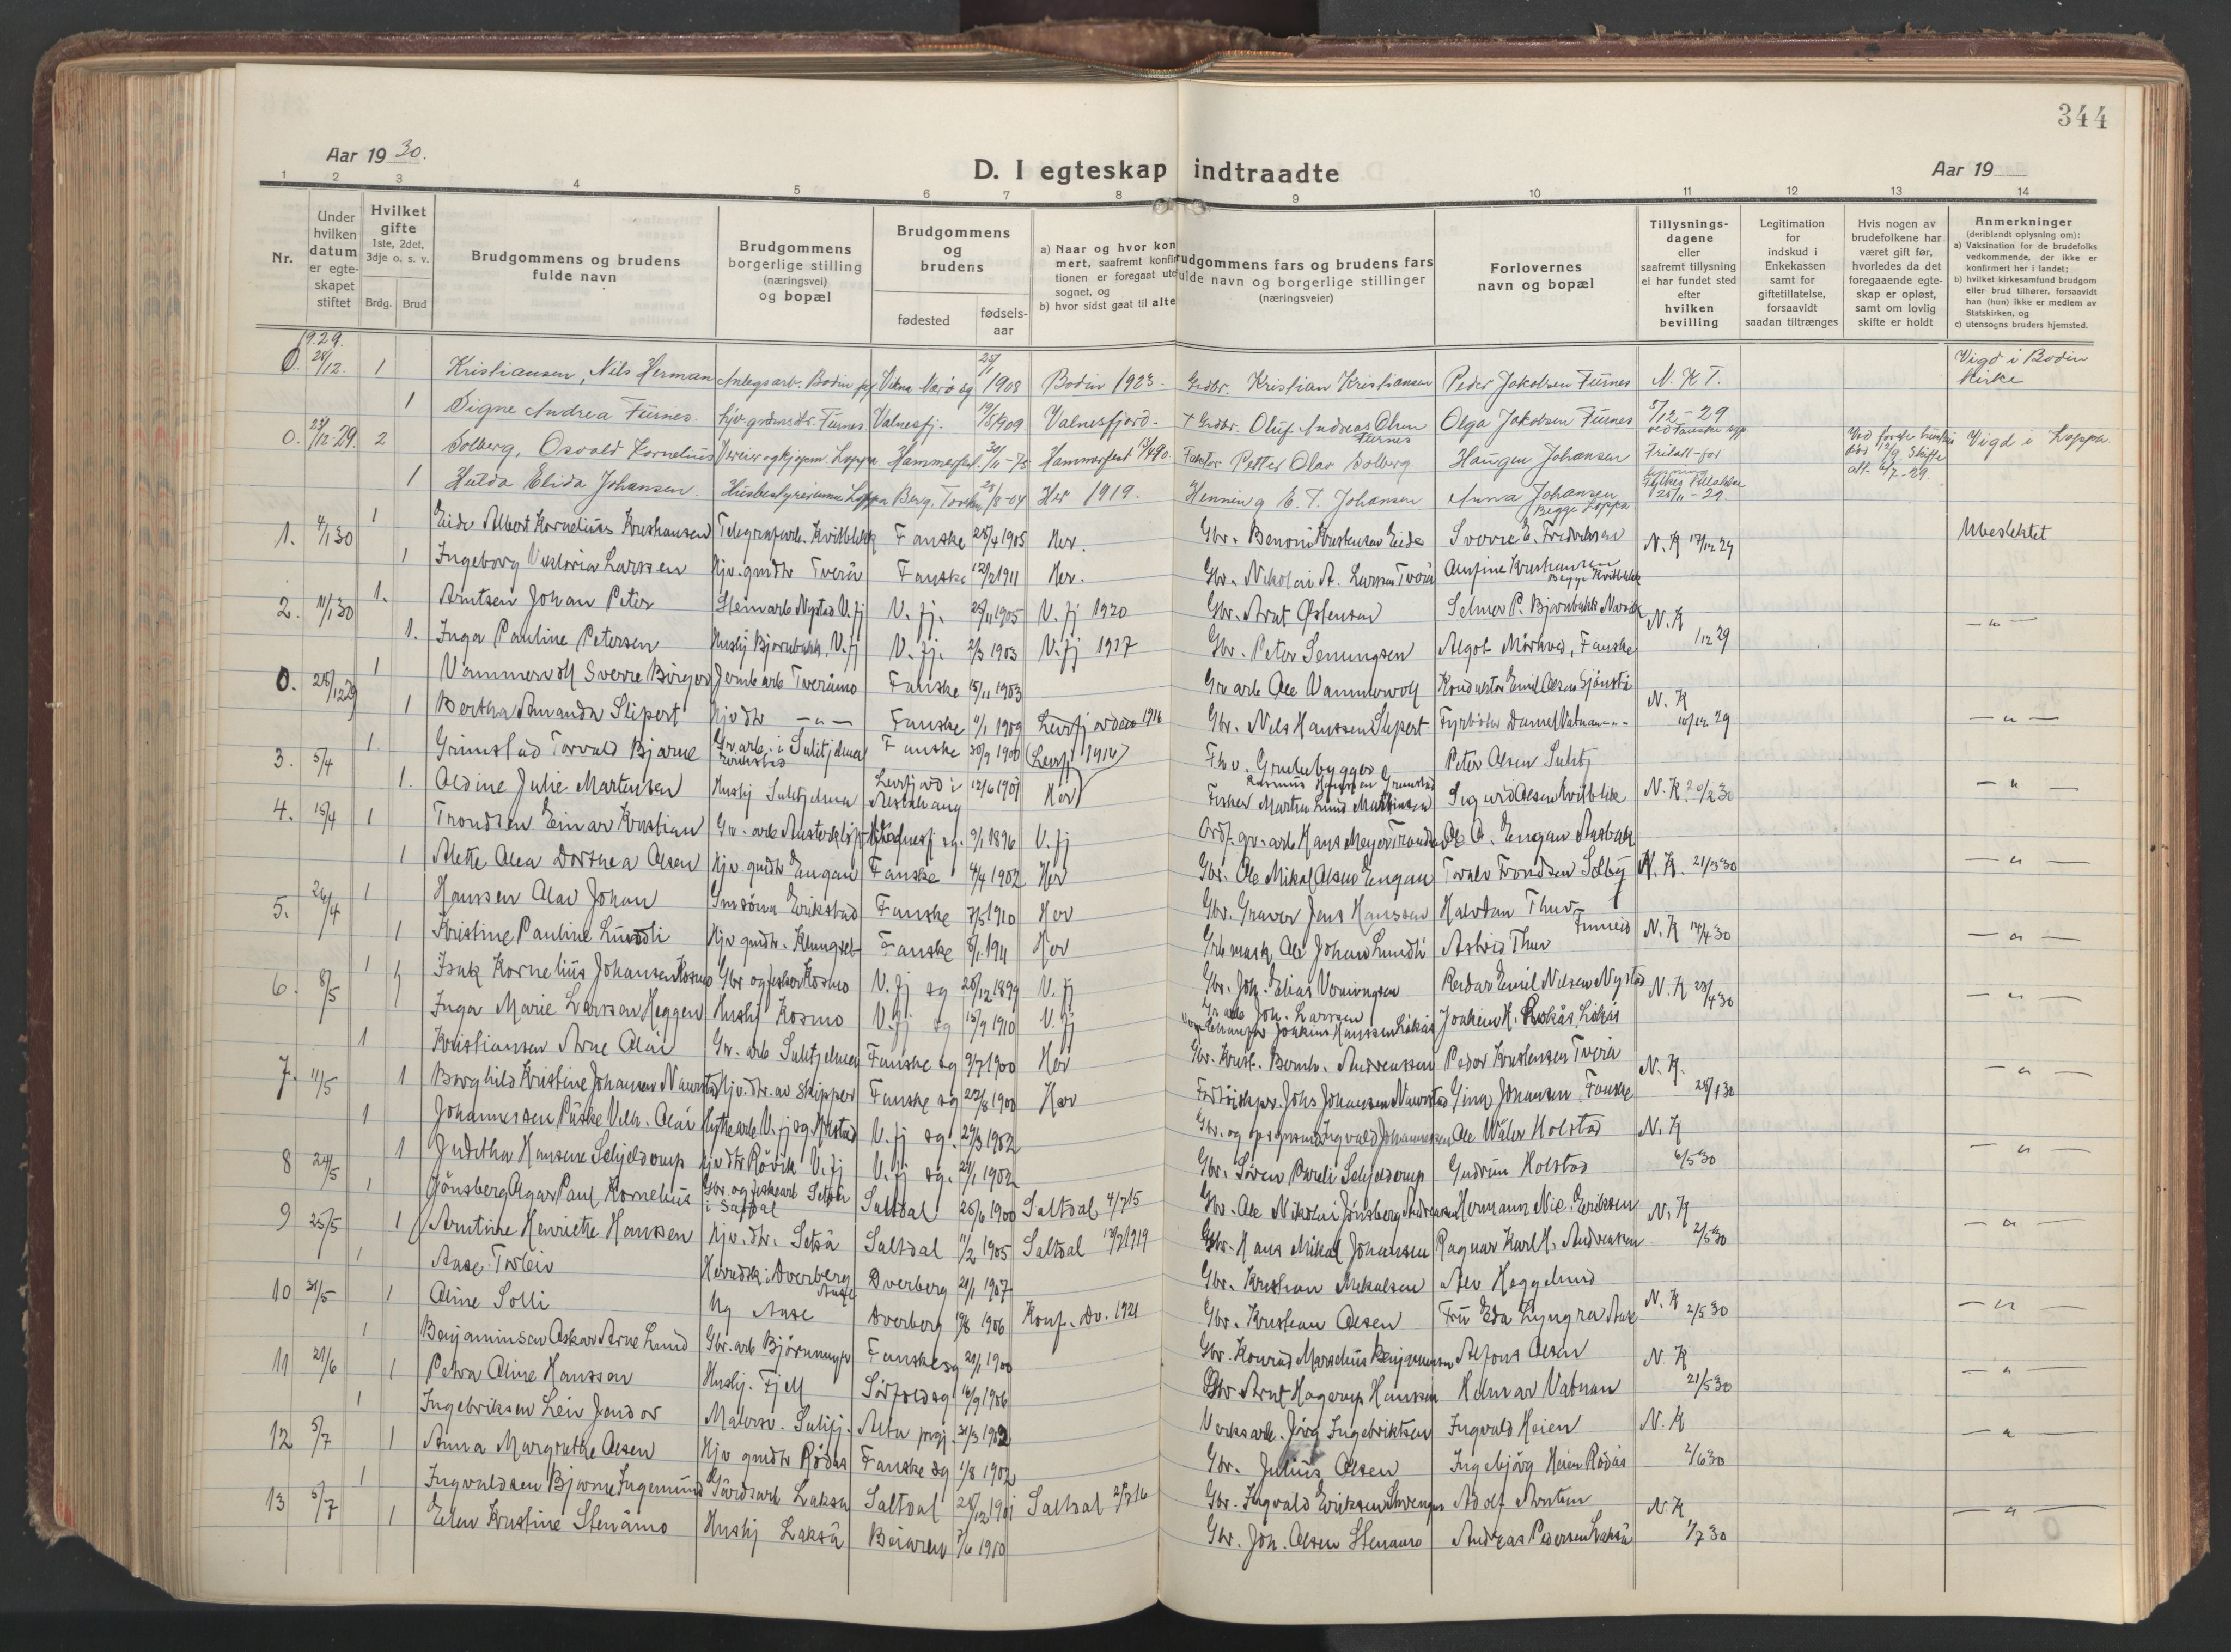 344
Aar 19 30.
D. I egteskap indtraadte
Aar 19
1 2 3 4 5 6 7 8 9 10 11 12 13 14
Nr.
Under hvilken datum er egteskapet stiftet
Hvilket gifte 1ste, 2det, 3dje o. s. v.
Brdg. Brud
Brudgommens og brudens fulde navn
Brudgommens borgerlige stilling (næringsvei) og bopæl
Brudgommens og brudens
fødested fødsels-aar
a) Naar og hvor kon
mert, saafremt konfir
tionen er foregaat ute
sognet, og
b) hvor sidst gaat til alte
rudgommens fars og brudens fars
ulde navn og borgerlige stillinger
(næringsveier)
Forlovernes navn og bopæl
Tillysnings-dagene eller saafremt tillysning ei har fundet sted efter hvilken bevilling
Legitimation for indskud i Enkekassen samt for giftetillatelse, forsaavidt saadan tiltrænges
Hvis nogen av brudefolkene har været gift før, hvorledes da det foregaaende egteskap er opløst, samt om lovlig skifte er holdt
Anmerkninger
(deriblandt oplysning om):
a) Vaksination for de brudefolks vedkommende, der ikke er konfirmert her i landet;
b) hvilket kirkesamfund brudgom eller brud tilhører, forsaavidt han (hun) ikke er medlem av Statskirken, og
c) utensogns bruders hjemsted.
1929.
0. 28/12. 1 Kristiansen, Nils Herman Anlegsarb. Bodin 25/1 1908 Bodin 1923. Grdbr. Kristian Kristiansen Peder Jakobsen Furnes N. K T. Vigd i Bodin Kirke
1 Signe Andrea Furnes. hjv. grdmdtr. Furnes Valnesfj. 19/5 1909 Valnesfjord. + Grdbr. Oluf Andreas Olsen Furnes Olga Jakobsen Furnes 5/12-29
0. 28/12-29. 2 Solberg, Osvald Kornelius Loppa Hammerfest. 30/11-75 Hammerfest Faktor Petter Olav Solberg Haugen Johansen Vigd i Loppa
1 Hulda Elida Johansen. Husbestyrerinne Loppa Berg, 8-04 Her 1919. Henning E. T. Johansen Anna Johansen Begge Loppa 25/11-29.
1. 4/1 30 1 Eide Albert Kornelius Kristiansen Telegrafarb. Kvitblikk Fauske 28/4 1905 Her. Gbr. Benoni Kristensen Eide Sverre E. Fredriksen N. K 17/12 29 Ubeslektet
1 Ingeborg Viktoria Larsen Hjv. gmdtr Tverå Fauske 12/2 1911 Her. Gbr. Nikolai A. Larsen Tverå Alufine Kristiansen Begge Kvitblik
2. 11/1 30 1. Arntsen Johan Peter Stenarb Nystad V. fj V. fj. 25/11 1905 V. fj 1920 Gbr. Arnt Østensen Selmer P. Bjørnbakk N. K — " —
1. Inga Pauline Petersen Hushj Bjørnbakk, V. fj V. fj. 2/3 1903 V. fj 1917 Gbr. Peter Algot Mørkved, Fauske 1/12 29
0. 28/12 29 1 Vammervoll Sverre Birger Jernb arb Tveråmo Fauske 15/11 1903 Gr. arb Ole Vammervoll Konduktør Emil Olsen Sjønstå N. K
1 Bertha Amanda Slipert Hjv dtr — " — Fauske 4/1 1909 Gbr. Nils Hanssen Slipert Fyrbøter Daniel Vatnan 10/12 29 — " —
3. 5/4 1. Grimstad Torvald Bjarne Gr. arb. i Sulitjelma Fauske 30/9 1900 Fhv. Grubebygger Rasmus Hanssen Grimstad Peter Olsen Sulitj
1. Oldine Julie Martinsen Hushj Sulitjelma Leirfjord i Alstahaug 12/6 1901 Her Fisker Martin Lund Martinsen Sigurd Olsen Kvitblik N. K. 20/2 30 — " —
4. 15/4 1 Trondsen Einar Kristian Gr. arb 9/1 1896 V. fj Hans Meyer Trondsen Ole A. Engan
1 Alette Olea Dorthea Olsen Hjv. gmdtr Engan Fauske 4/4 1902 Her Gbr. Ole Mikal Olsen Engan Toralv Trondsen Solby N. K. 21/3 30 — " —
5. 26/4 1 Hanssen Olav Johan Erikstad Fauske 7/5 1910 Her Gbr. Graver Jens Hanssen Halvdan Thuv Finneid
1 Kristine Pauline Lundli Hjv gmdtr. Klungset Fauske 8/1 1911 Her Grb mask Ole Johan Lundli Astrid Thuv N. K 14/4 30 — " —
6. 8/5 1 Isak Kornelius Johansen Kosmo Gbr og fisker Kosmo V. fj sg 28/12 1899 V. fj Gbr. Joh. Elias Reidar Emil Nilsen Nystad N. K 28/4 30
1 Inga Marie Larsen Heggen Hushj Kosmo V. fj sg 15/9 1910 V. fj Gr arb Joh. Larsen Joakim Hanssen Løkås Joakim H. Løkås — " —
7. 11/5 1 Kristiansen Arne Olai Gr. arb Sulitjelma Fauske sg 9/7 1900 Her Gbr. Krist. Bernh. Andreassen Peder Kristensen Tverå N. K.
1 Borghild Kristine Johansen Hjv. dtr. av skipper Fauske sg 22/8 1900 Her Johs Johansen Gina Johansen, Fauske 28/4 30 — " —
8 24/5 1 Johannessen Påske Vilh. Olai V. fj sg. V. fj sg. 29/3 1902 Ingvald Johannessen Ole Holstad N. K
1 Juditha Hansine Schjelderup Hjv dtr Røvik V. fj V. fj sg. 1902 Gbr. Søren Pareli Schjelderup Gudrun Holstad 6/5 30 — " —
9 25/5 1 Jönsberg Paul Kornelius Gbr. og fiskearb Setså i Saltdal Saltdal 28/6 1900 Saltdal 4/7 15 Gbr. Ole Nikolai Jönsberg Andreassen Hermann Nic. Eriksen N. K
1 Arntine Henriette Hanssen Hjv. dtr. Setså Saltdal 11/2 1905 Saltdal 1919 Gbr. Hans Mikal Johansen Ragnar Karl H. Andreassen 2/5 30 — " —
10 31/5 1 Aase Torleiv Dverberg Dverberg 21/1 1907 Gbr. Kristian Mikalsen Alv Heggelund
1 Aline Solli Aase Dverberg 1906 Konf. Dv. 1921 Gbr. Kristian Olsen Fru Eda Lyngra Aase N. K 2/5 30 — " —
11 21/6 1 Benjaminsen Oskar Arne Lund Gbr. arb Fauske sg 21/1 1900 Gbr. Konrad Marselius Benjaminsen Alfons Olsen N. K
1 Petra Oline Hanssen Hushj. Fjell Sørfold sg 16/9 1906 Gbr Arnt Hagerup Hanssen Helmar Vatnan 21/5 30 — " —
12 5/7 1 Ingebriktsen Leiv Jendor Malersv. Sulitj. Alta prgj. 31/3 1902 Verksarb. Jörg Ingebriktsen Ingvald Heien N. K
1 Anna Margrethe Olsen Hjv gmdtr Rødås Fauske sg 1/8 1902 Gbr. Julius Olsen Ingebjörg Heien Rødås 2/6 30 — " —
13 5/7 1 Ingvaldsen Bjarne Ingemund Lakså Saltdal 28/12 1901 Saltdal 2/7 16 Gbr. Ingvald Eriksen Adolf Arntsen N. K
1 Ellen Kristine Stenåmo Hushj Lakså Beiaren 7/6 1910 Gbr. Joh. Olsen Stenamo Andreas Pedersen Lakså 1/7 30 — " —